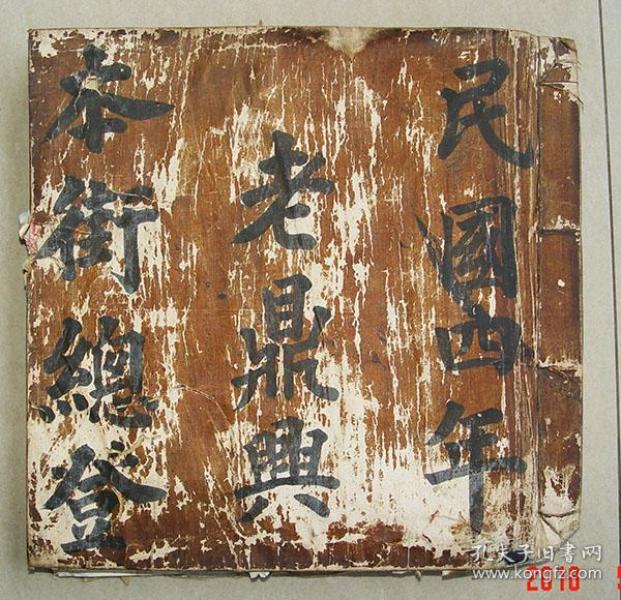 民國四年
老鼎興
本街總登
孔夫子旧书网
www.kongfz.com
2010